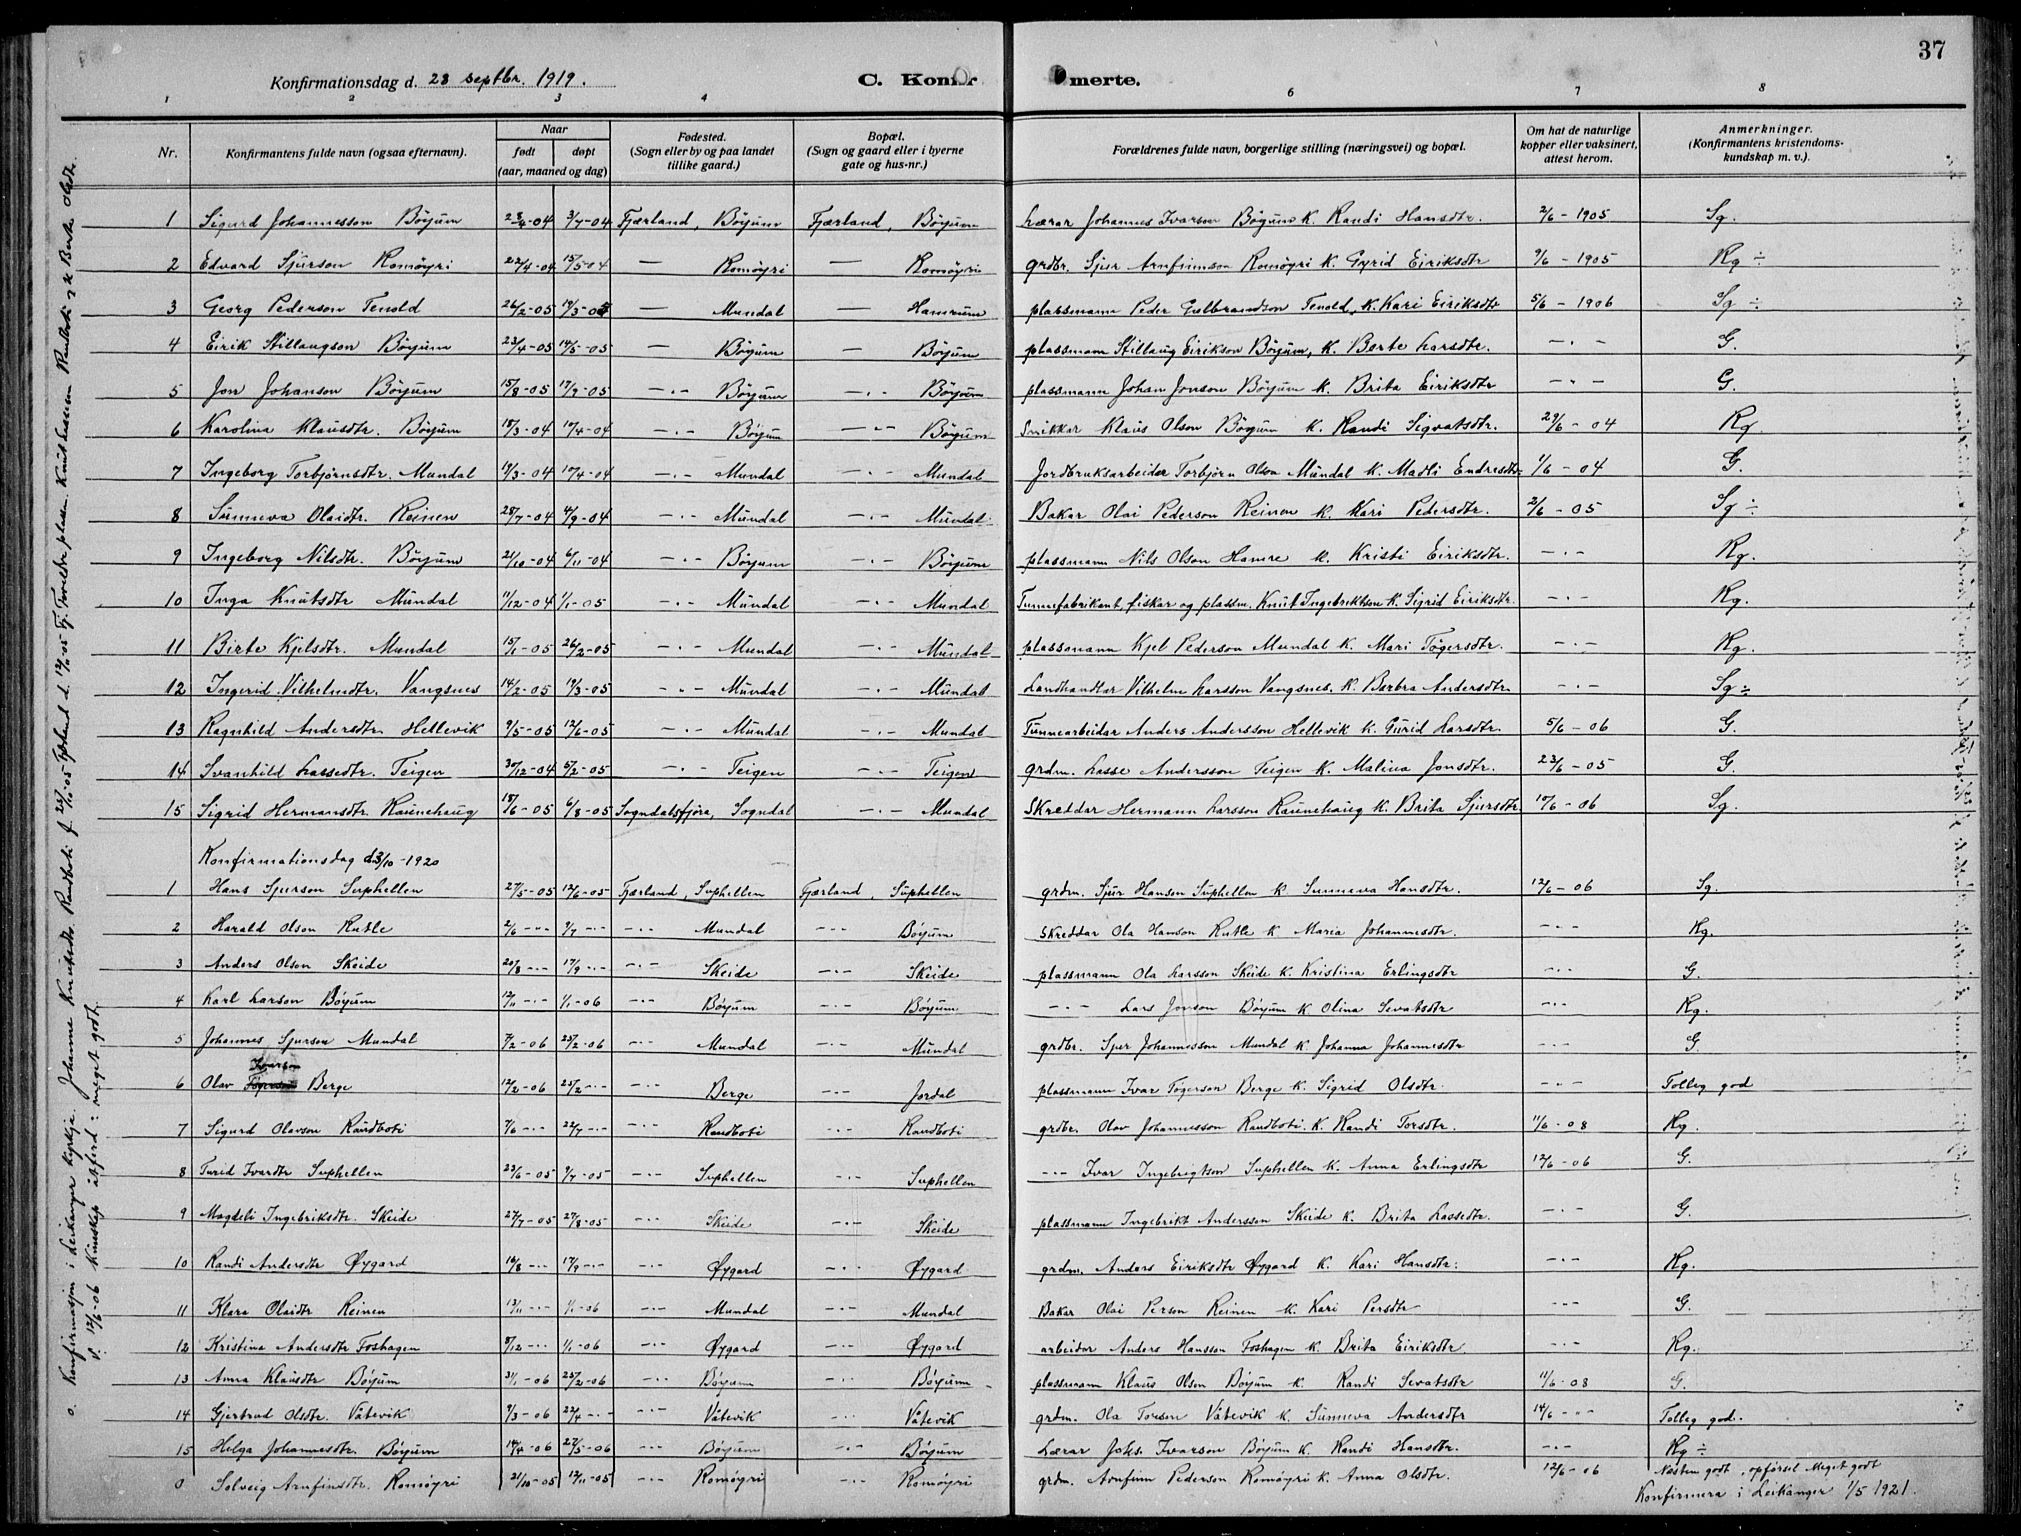 37
Konfirmationsdag d. 28 septbr. 1919.
C. Konfir merte.
1 2 3 4 6 7 8
Nr. Konfirmantens fulde navn (ogsaa efternavn). Naar født døpt (aar, maaned og dag) Fødested. (Sogn eller by og paa landet tillike gaard.) Bopæl. (Sogn og gaard eller i byerne gate og hus-nr.) Forældrenes fulde navn, borgerlige stilling (næringsvei) og bopæl. Om hat de naturlige kopper eller vaksinert, attest herom. Anmerkninger. (Konfirmantens kristendoms-kundskap m. v.).
1 Sigurd Johannesson Böyum 2/4-04 3/7-04 Fjærland, Böyum Fjærland, Böyum Lærar Johannes Ivarson Böyum k. Randi Hansdtr. 2/6-1905 Sg.
2 Edvard Sjurson Romöyri 22/4-04 15/5-04 — Romöyri — Romöyri grdbr. Sjur Arnfinnson Romöyri k. Gyrid Eiriksdtr 9/6-1905 Rg ÷
3 Georg Pederson Tenold 26/2-05 19/3-05 — Mundal — Hamrum plassmann Peder Gulbrandson Tenold, k. Kari Eiriksdtr 5/6-1906 Sg ÷
4 Eirik Stillaugson Böyum 23/4-05 14/5-05 — Böyum — Böyum plassmann Stillaug Eirikson Böyum, k. Berte Larsdtr. -.- G.
5 Jon Johanson Böyum 15/8-05 17/9-05 -.- Böyum -.- Böyum plassmann Johan Jonson Böyum k. Brita Eiriksdtr -.- G.
6 Karolina Klausdtr. Böyum 18/3-04 10/4-04 -.- Böyum -.- Böyum Snikkar Klaus Olson Böyum k. Randi Sigvatsdtr. 29/6-04 Rg.
7 Ingeborg Torbjörnsdtr. Mundal 19/3-04 10/4-04 -.- Mundal -.- Mundal Jordbruksarbeidar Torbjörn Olson Mundal k. Madli Endresdtr 1/6-04 G.
8 Sunneva Olaidtr. Reinen 28/7-04 4/9-04 -.- Mundal -.- Mundal Bakar Olai Pederson Reinen k. Kari Pedersdtr. 2/6-05 Sg ÷
9 Ingeborg Nilsdtr. Böyum 21/10-04 6/11-04 -.- Böyum -.- Böyum plassmann Nils Olson Hamre k. Kristi Eiriksdtr. -.- Rg.
10 Inga Knutsdtr Mundal 11/12-04 1/1-05 -.- Mundal -.- Mundal Tunnefabrikant, fiskar og plassm. Knut Ingebriktson k. Sigrid Eiriksdtr. -.- Rg.
11 Birte Kjelsdtr. Mundal 15/1-05 26/2-05 -.- Mundal -.- Mundal plassmann Kjel Pederson Mundal k. Mari Tögersdtr. -.- Rg.
12 Ingerid Vilhelmdtr. Vangsnes 14/2-05 19/3-05 -.- Mundal -.- Mundal Landhandlar Vilhelm Larsson Vangsnes. k. Barbra Andersdtr -.- Sg ÷
13 Ragnhild Andersdtr. Hellevik 9/5-05 12/6-05 -.- Mundal -.- Mundal Tunnearbeidar Anders Andersson Hellevik k. Gurid Larsdtr. 5/6-06 G.
14 Svanhild Lassedtr. Teigen 30/12-04 5/2-05 -.- Teigen -.- Teigen grdm. Lasse Andersson Teigen k. Malina Jonsdtr. 23/6-05 G.
15 Sigrid Hermansdtr. Raunehaug 18/6-05 6/8-05 Sogndalsfjöra, Sogndal -.- Mundal Skreddar Hermann Larsson Raunehaug k. Brita Sjursdtr. 10/6-06 Sg.
Konfirmationsdag d 3/10-1920
1 Hans Sjurson Suphellen 27/5-05 12/6-05 Fjærland, Suphellen Fjærland, Suphellen grdm. Sjur Hanson Suphellen k Sunneva Hansdtr. 12/6-06 Sg.
2 Harald Olson Rutle 2/6 -.- 9/7 -.- -.- Mundal -.- Böyum Skreddar Ola Hanson Rutle k Maria Johannesdtr. -.- Rg.
3 Anders Olson Skeide 20/8 -.- 17/9 -.- -.- Skeide -.- Skeide plassmann Ola Larsson Skeide k. Kristina Erlingsdtr -.- G.
4 Karl Larson Böyum 12/11 -.- 1/1-06 -.- Böyum -.- Böyum -.- Lars Jonson Böyum k Olina Sevatsdtr -.- Rg.
5 Johannes Sjurson Mundal 7/2-06 25/2-06 -.- Mundal -.- Mundal grdbr. Sjur Johannesson Mundal k. Johanna Johannesdtr -.- G.
Ivarson
6 Olav Tögerson Berge 12/2-06 25/2 -.- -.- Berge -.- Jordal plassmann Ivar Tögerson Berge k. Sigrid Olsdtr. -.- Tolleg god
7 Sigurd Olavson Raudboti 7/6 -.- 22/7 -.- -.- Raudboti -.- Raudboti grdbr. Olav Johannesson Raudboti. k. Randi Torsdtr. 11/6-08 Rg.
8 Turid Ivardtr Suphellen 23/6-05 9/7-05 -.- Suphellen -.- Suphellen -.- Ivar Ingebrigtson Suphellen k. Anna Erlingsdtr 12/6-06 G.
9 Magdeli Ingebriksdtr. Skeide 27/7-05 27/8-05 -.- Skeide -.- Skeide plassmann Ingebrikt Andersson Skeide k. Brita Lassedtr. -.- G.
10 Randi Andersdtr Øygard 16/8 -.- 17/9 -.- -.- Øygard -.- Øygard grdm. Anders Eiriksdtr Øygard k. Kari Hansdtr: -.- Rg.
11 Klara Olaidtr Reinen 13/11 -.- 1/1-06 -.- Mundal -.- Mundal Bakar Olai Person Reinen k. Kari Persdtr -.- G.
12 Kristina Andersdtr Foshagen 8/12 -.- 1/1-06 -.- Øygard -.- Øygard arbeidar Anders Hansson Foshagen k. Brita Eiriksdtr -.- Rg.
13 Anna Klausdtr Böyum 31/1-06 25/2-06 -.- Böyum -.- Böyum plassmann Klaus Olson Böyum k. Randi Sevatsdtr 11/6-08 G.
14 Gjertrud Olsdtr. Våtevik 9/3-06 22/4 -.- -.- Våtevik -.- Våtevik grdm. Ola Torson Våtevik k. Sunneva Andersdtr 14/6 -.- Tolleg god.
15 Helga Johannesdtr. Böyum 14/4-06 27/5-06 -.- Böyum -.- Böyum Lærar Johs. Ivarson Böyum k. Randi Hansdtr. -.- Rg ÷
0 Solveig Arnfinsdtr. Romöyri 21/10-05 12/11-05 -.- Romöyri -.- Romöyri grdm. Arnfinn Pederson Romöyri k. Anna Olsdtr. 12/6-06 Næsten godt, opförsel Meget godt
Konfirmera i Leikanger 1/5 1921.
o. Konfirmasjon i Leikanger kyrkje. Johanne Knutsdtr. Raudboti f. 22/10-05 Fjærland d. 12/11-05 Fj. Foreldre plassm. Knut Lassson Raudboti og k. Berte Olsdtr.
V. 12/6-06 Kunskap åtferd: meget godt.